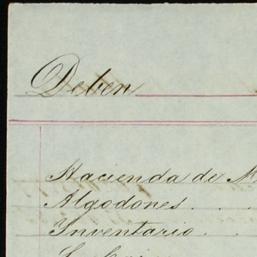 Deben
Hacienda de M
Algodones . . .
Inventario .